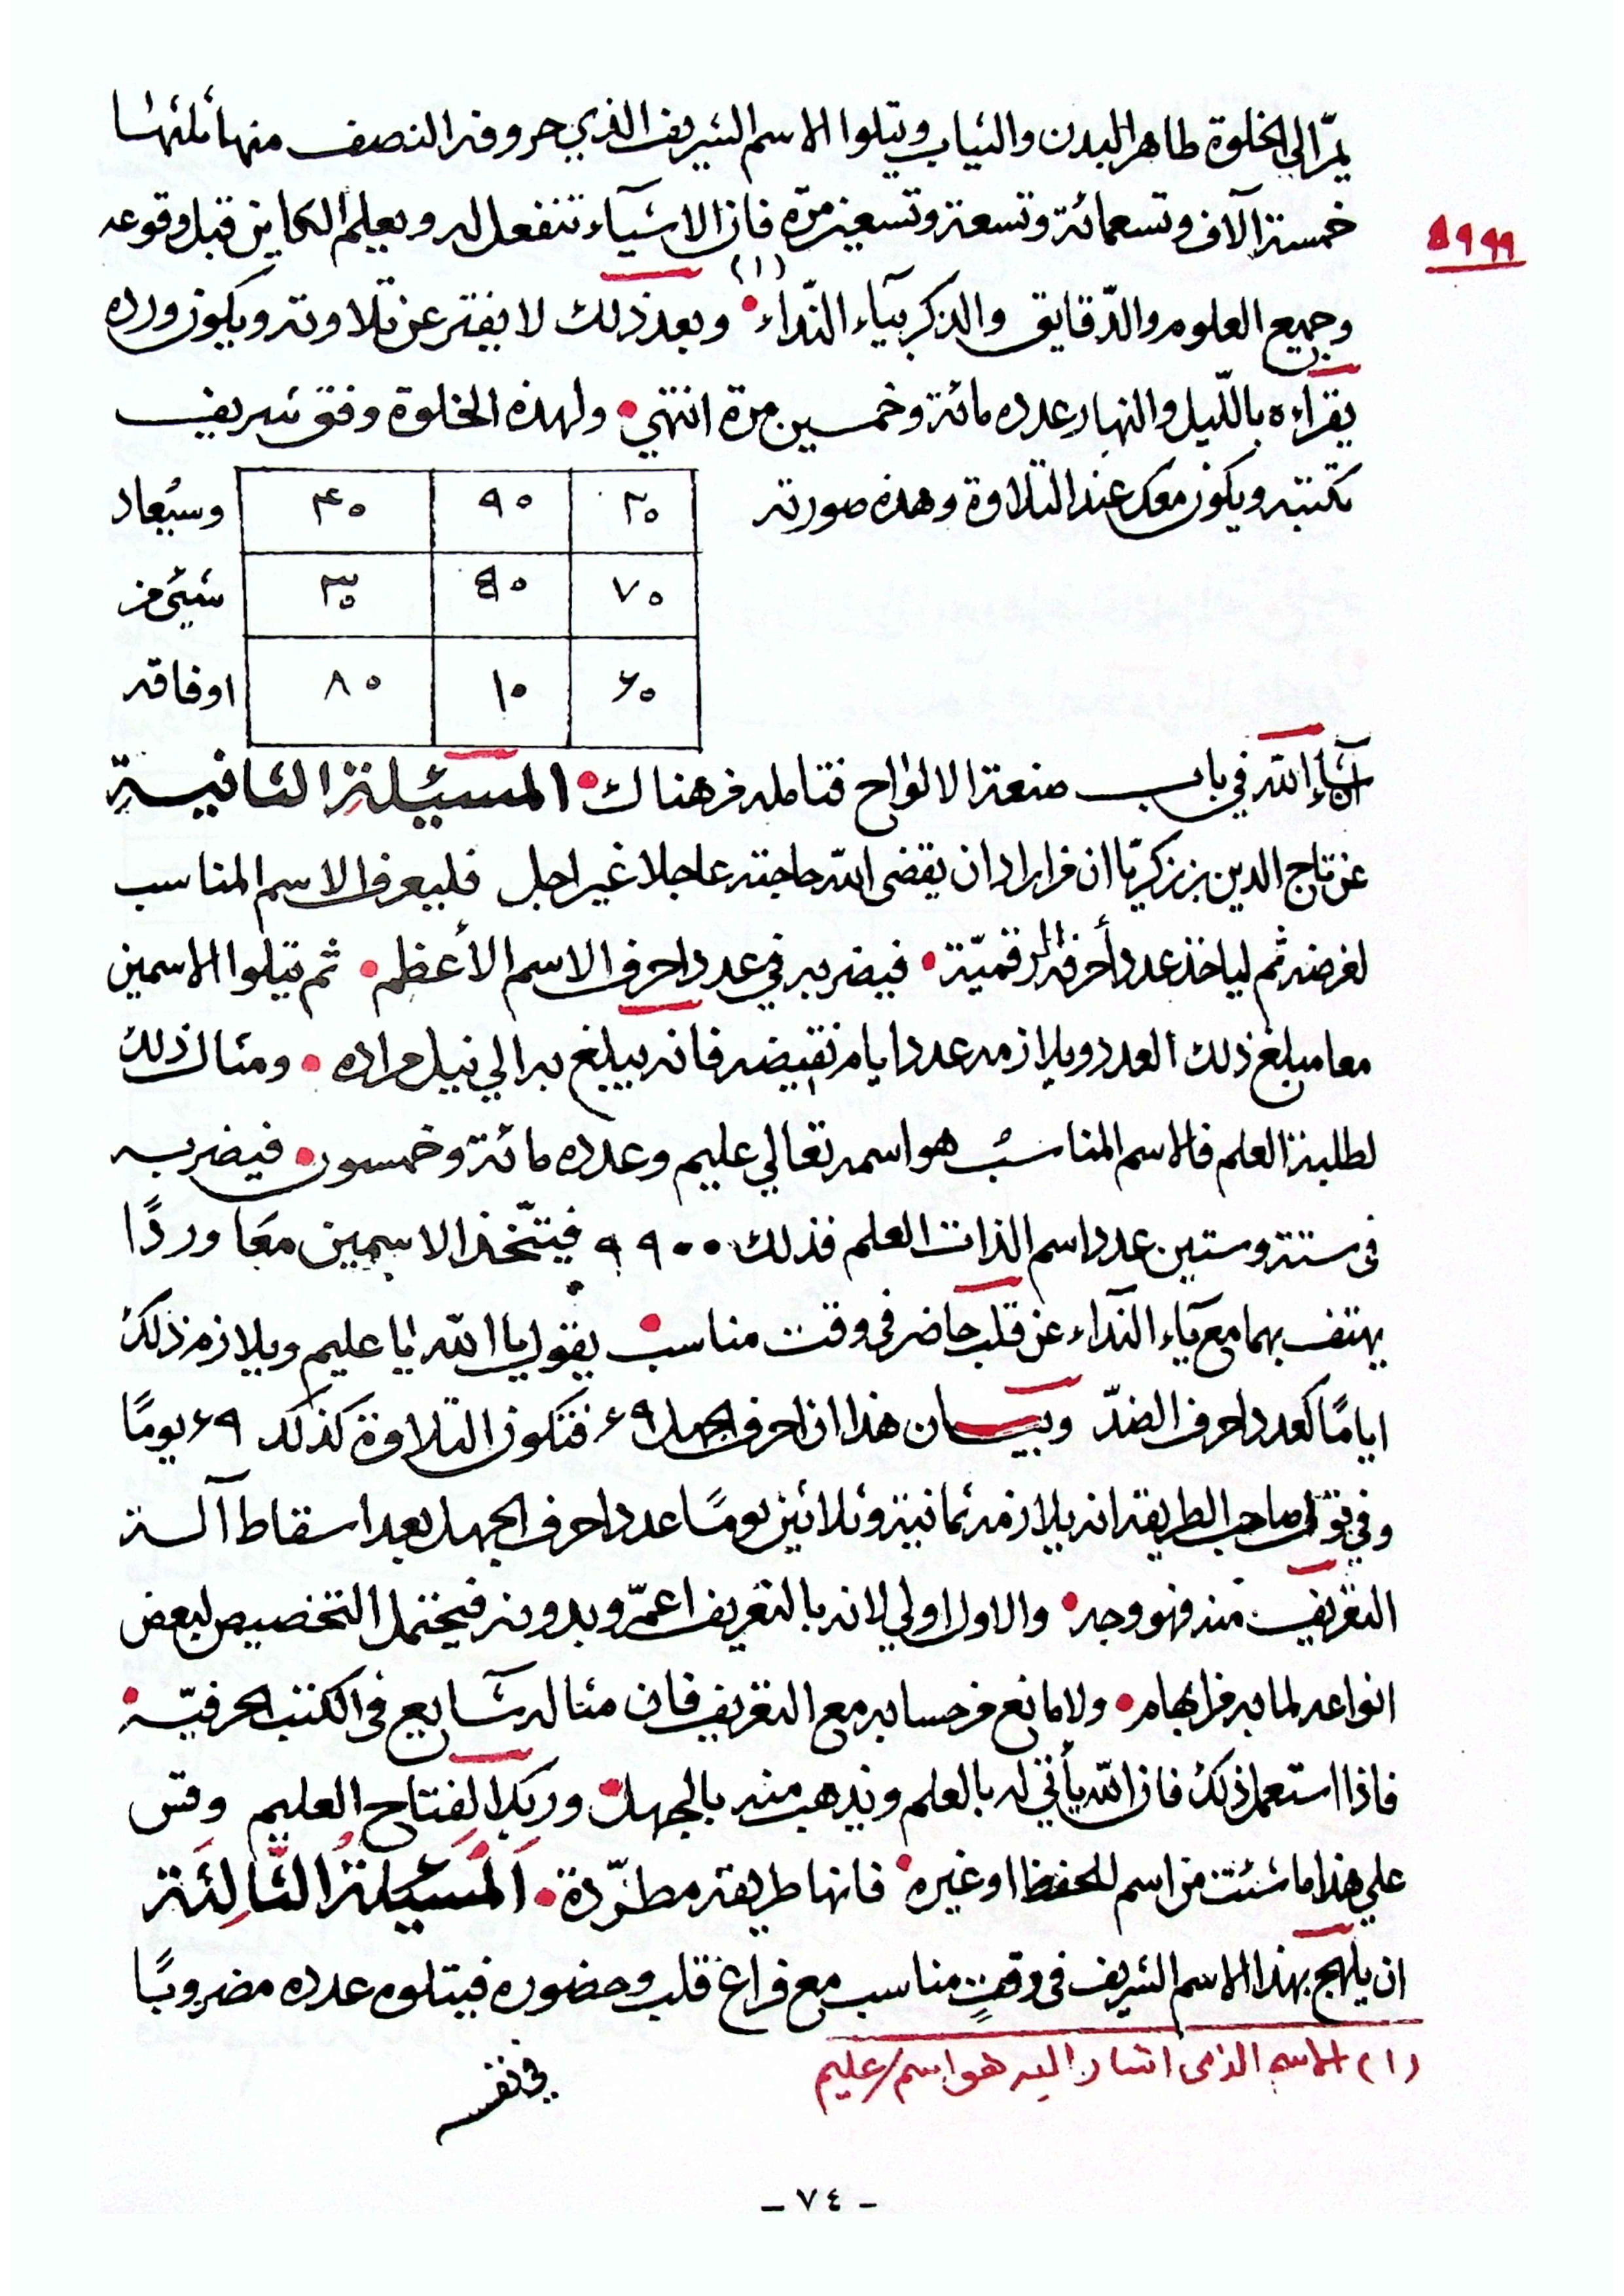 يمرّ الى الخلوة طاهر البدن والثياب ويتلوا الاسم الشريف الذي حروفه النصف منها ثلثها
خمسة آلاف وتسعمائة وتسعة وتسعين مرّة فان الاشيآء تنفعل له ويعلم الكاين قبل وقوعه
٥٩٩٩
وجميع العلوم والدّقايق والذكر بيآء النّداء (١) وبعد ذلك لا يفتر عن تلاوته ويكون ورده
يقراءه بالليل والنهار عدده مائة وخمسين مرة انتهي ولهذه الخلوة وفق شريف
تكتبه ويكون معك عند التلاوة وهذه صورته
٢٠ ٩٠ ٤٠
٧٠ ٥٠ ٣٠
٦٠ ١٠ ٨٠
وسيُعاد
شيئ من
اوفاقه
انشآء الله في باب صنعة الالواح فتامله من هناك المسئلة الثانية
عن تاج الدين بن زكريّا ان من اراد ان يقضى الله حاجته عاجلا غير اجل فليعرف الاسم المناسب
لغرضه ثم لياخذ عدد أحرفه الرقميّة فيضربه في عدد احرف الاسم الأعظم ثم يتلوا الاسمين
معا مبلغ ذلك العدد ويلازمه عدد ايام نقيضه فانه يبلغ به الي نيل مراده ومثال ذلك
لطلبة العلم فالاسم المناسب هو اسمه تعالي عليم وعدده مائة وخمسون فيضربه
فى ستة وستين عدد اسم الذات العلم فذلك ٩٩٠٠ فيتّخذ الاسمين معًا وردًا
يهتف بهما مع يآء النّدآء عن قلب حاضر فى وقت مناسب يقول يا الله يا عليم ويلازم ذلك
ايامًا كعدد احرف الضدّ وبيان هذا ان احرف الجهل ٦٩ فتكون التلاوة كذلك ٦٩ يومًا
وفي قول صاحب الطريقة انه يلازمه ثمانية وثلاثين يومًا عدد احرف الجهل بعد اسقاط آلة
التعريف منه فهو وجه والاول اولي لانه بالتعريف اعمّ وبدونه فيحتمل التخصيص لبعض
انواعه لما به من ابهام ولا مانع من حسابه مع التعريف فان مثاله شآيع فى الكتب الحرفيّة
فاذا استعمل ذلك فان الله يأتي له بالعلم ويذهب منه بالجهل وربك الفتاح العليم وقس
علي هذا ما شئت من اسم للحفظ او غيره فانها طريقة مطّردة المسئلة الثالثة
ان يلهج بهذا الاسم الشريف فى وقت مناسب مع فراغ قلب وحضوره فيتلوه عدده مضروبًا
(١) الاسم الذى اشار اليه هو اسم عليم
في نفسه
- ٧٤ -